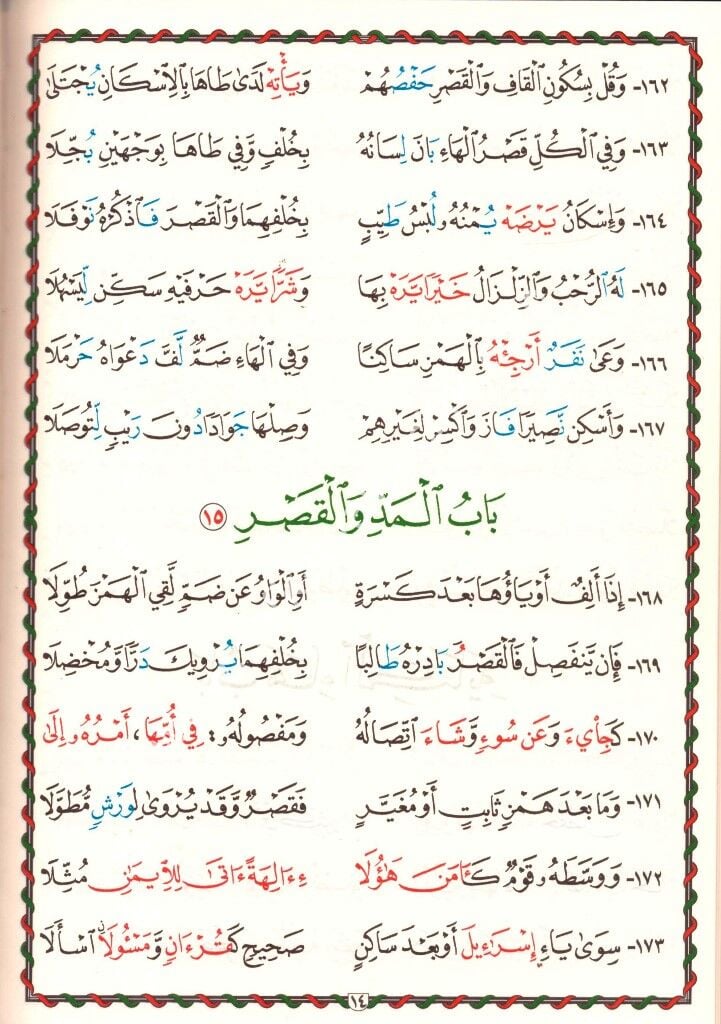 ١٦٢- وَقُلْ بِسُكُونِ الْقَافِ وَالْقَصْرِ حَفْصُهُمْ وَيَأْتِهْ لَدَى طَاهَا بِالِاسْكَانِ يُجْتَلَى
١٦٣- وَفِي الْكُلِّ قَصْرُ الْهَاءِ بَانَ لِسَانُهُ بِخُلْفٍ وَفِي طَاهَا بِوَجْهَيْنِ بُجِّلَا
١٦٤- وَإِسْكَانُ يَرْضَهْ يُمْنُهُ و لُبْسُ طَيِّبٍ بِخُلْفِهِمَا وَالْقَصْرَ فَاذْكُرْهُ نَوْفَلَا
١٦٥- لَهُ الرُّحْبُ وَالزِّلْزَالُ خَيْرًا يَرَهْ بِهَا وَشَرًّا يَرَهْ حَرْفَيْهِ سَكِّنْ لِيَسْهُلَا
١٦٦- وَعَى نَفَرٌ أَرْجِئْهُ بِالْهَمْزِ سَاكِنًا وَفِي الْهَاءِ ضَمٌّ لَفَّ دَعْوَاهُ حَرْمَلَا
١٦٧- وَأَسْكِنْ نَصِيرًا فَازَ وَاكْسِرْ لِغَيْرِهِمْ وَصِلْهَا جَوَادًا دُونَ رَيْبٍ لِتُوصَلَا
بَابُ الْمَدِّ وَالْقَصْرِ ١٥
١٦٨- إِذَا أَلِفٌ أَوْ يَاؤُهَا بَعْدَ كَسْرَةٍ أَوِ الْوَاوُ عَنْ ضَمٍّ لَقِي الْهَمْزَ طُوِّلَا
١٦٩- فَإِنْ يَنْفَصِلْ فَالْقَصْرُ بَادِرْهُ طَالِبًا بِخُلْفِهِمَا يُرْوِيكَ دَرًّا وَمُخْضِلَا
١٧٠- كَجِاْيءَ وَعَنْ سُوءٍ وَشَاءَ اتِّصَالُهُ وَمَفْصُولُهُ و: فِي أُمِّهَا، أَمْرُهُ و إِلَى
١٧١- وَمَا بَعْدَ هَمْزٍ ثَابِتٍ أَوْ مُغَيَّرٍ فَقَصْرٌ وَقَدْ يُرْوَى لِوَرْشٍ مُطَوَّلَا
١٧٢- وَوَسَّطَهُ و قَوْمٌ كَـَٔامَنَ هَٰؤُلَا ءِ ءَالِهَةً ءَاتَى لِلْإِيمَٰنِ مُثِّلَا
١٧٣- سِوَى يَاءِ إِسْرَاءِيلَ أَوْ بَعْدَ سَاكِنٍ صَحِيحٍ كَقُرْءَانٍ وَمَسْئُولًا اسْأَلَا
١٤